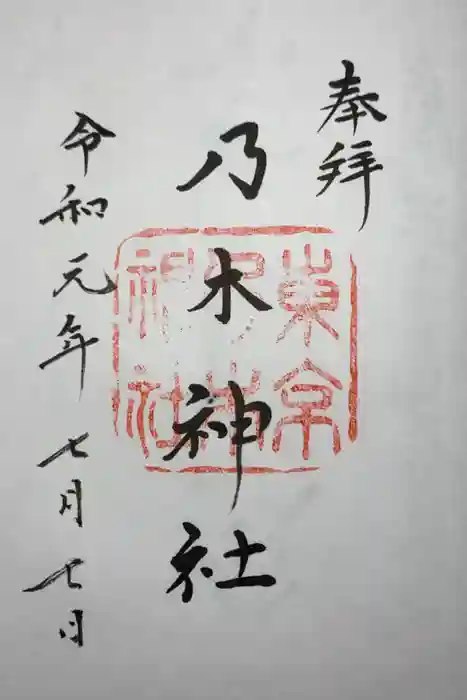 奉拝
乃木神社
東京
乃木
神社
令和元年七月七日